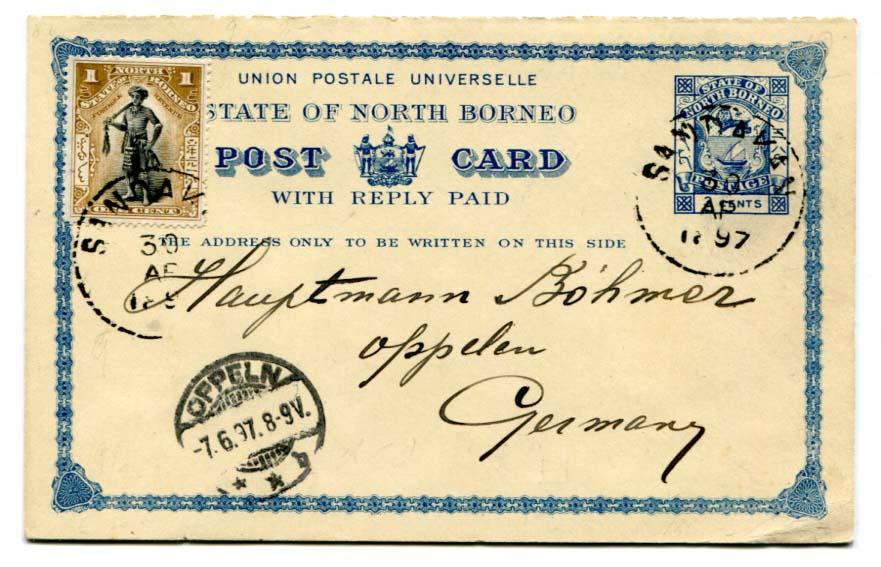 UNION POSTALE UNIVERSELLE
STATE OF NORTH BORNEO
POST CARD
WITH REPLY PAID
THE ADDRESS ONLY TO BE WRITTEN ON THIS SIDE
1 NORTH 1
STATE OF BORNEO
POSTAGE & REVENUE
ONE CENT
STATE OF
NORTH BORNEO
POSTAGE
CENTS
SANDAKAN
30
AP
1897
SANDAKAN
30
AP
Hauptmann Böhmer
Oppelen
Germany
OPPELN
-7.6.97.8-9V.
* *